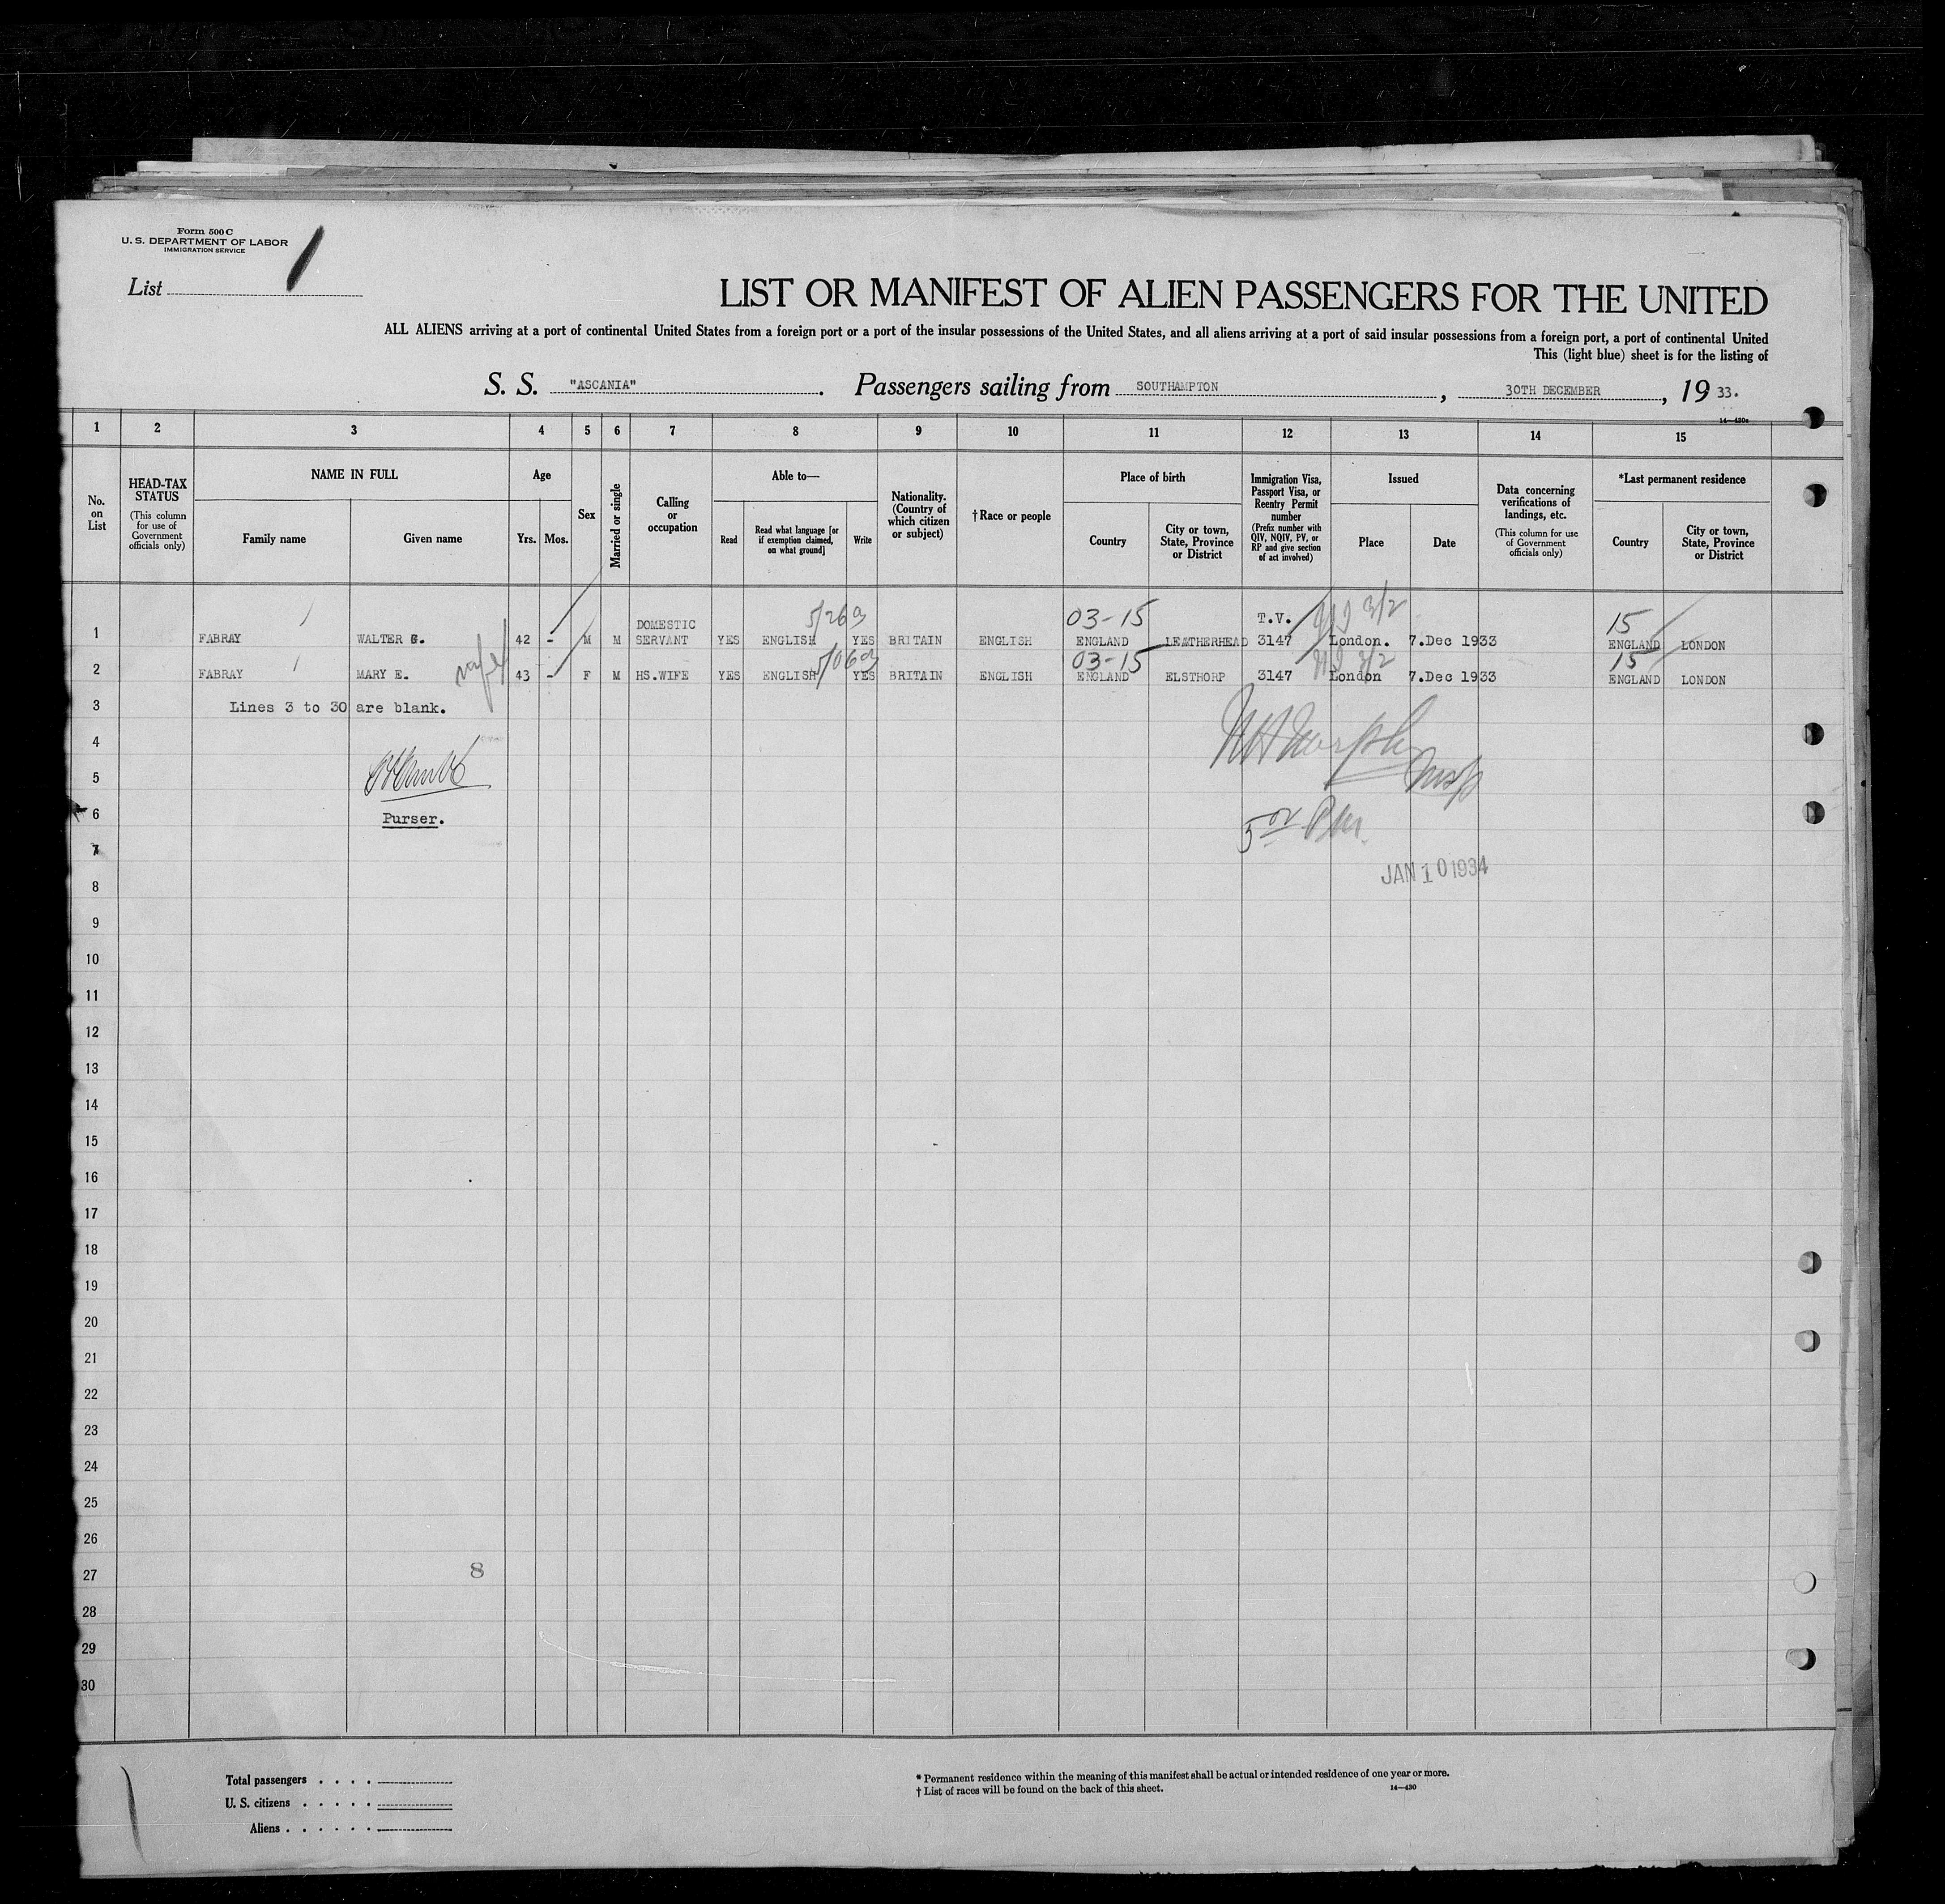 Form 500 C
U. S. DEPARTMENT OF LABOR
IMMIGRATION SERVICE
List 1
LIST OR MANIFEST OF ALIEN PASSENGERS FOR THE UNITED
ALL ALIENS arriving at a port of continental United States from a foreign port or a port of the insular possessions of the United States, and all aliens arriving at a port of said insular possessions from a foreign port, a port of continental United
This (light blue) sheet is for the listing of
S. S. "ASCANIA". Passengers sailing from SOUTHAMPTON, 30TH DECEMBER, 19 33.
14—430a
1 2 3 4 5 6 7 8 9 10 11 12 13 14 15
No. on List
HEAD-TAX STATUS (This column for use of Government officials only)
NAME IN FULL
Family name
Given name
Age
Yrs.
Mos.
Sex
Married or single
Calling or occupation
Able to—
Read
Read what language [or if exemption claimed, on what ground]
Write
Nationality. (Country of which citizen or subject)
†Race or people
Place of birth
Country
City or town, State, Province or District
Immigration Visa, Passport Visa, or Reentry Permit number (Prefix number with QIV, NQIV, PV, or RP and give section of act involved)
Issued
Place
Date
Data concerning verifications of landings, etc. (This column for use of Government officials only)
*Last permanent residence
Country
City or town, State, Province or District
5/263 03-15 T.V. 3/2 15
1 FABRAY WALTER G. 42 - M M DOMESTIC SERVANT YES ENGLISH YES BRITAIN ENGLISH ENGLAND LEATHERHEAD 3147 London. 7.Dec 1933 ENGLAND LONDON
wife 03-15 3/2 15
2 FABRAY MARY E. 43 - F M HS.WIFE YES ENGLISH YES BRITAIN ENGLISH ENGLAND ELSTHORP 3147 London 7.Dec 1933 ENGLAND LONDON
3 Lines 3 to 30 are blank.
4
5
6 Purser.
7
JAN 10 1934
8
9
10
11
12
13
14
15
16
17
18
19
20
21
22
23
24
25
26
27 8
28
29
30
Total passengers . . . .
U. S. citizens . . . . .
Aliens . . . . . .
* Permanent residence within the meaning of this manifest shall be actual or intended residence of one year or more.
† List of races will be found on the back of this sheet.
14—430